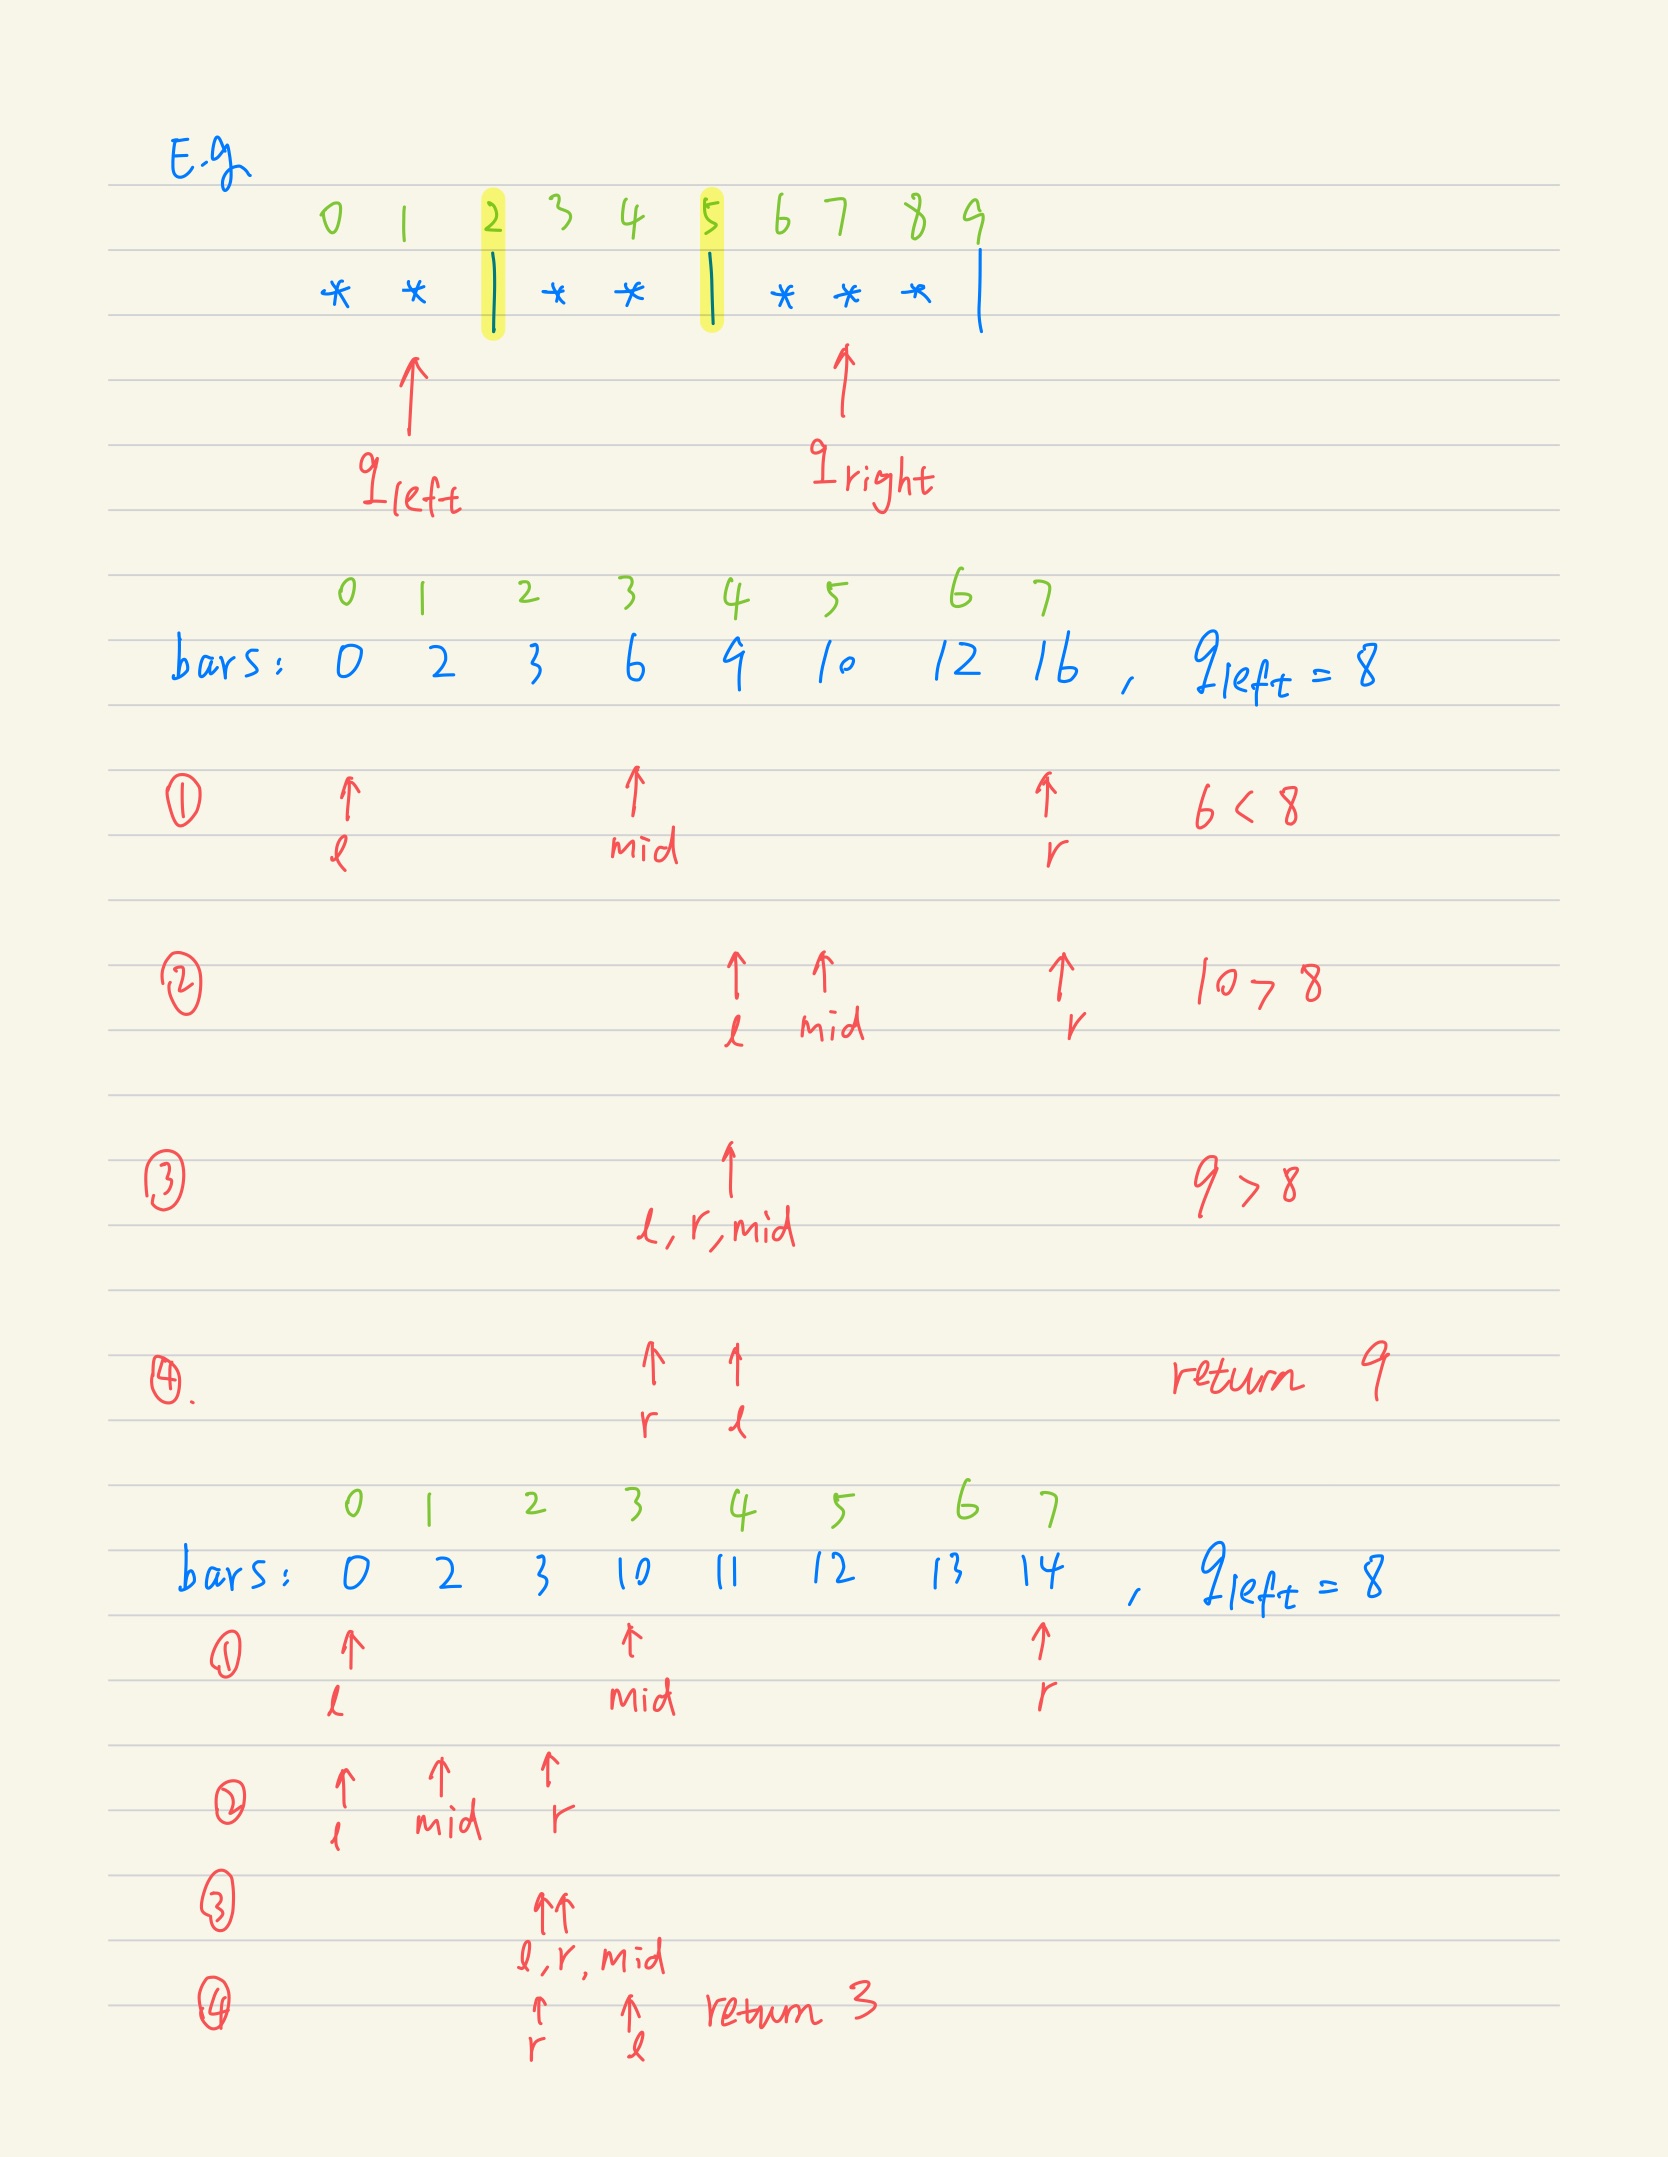 E.g
0 1 2 3 4 5 6 7 8 9
* * | * * | * * * |
q left q right
0 1 2 3 4 5 6 7
bars: 0 2 3 6 9 10 12 16 , q left = 8
① l mid r 6 < 8
② l mid r 10 > 8
③ l, r, mid 9 > 8
④. r l return 9
0 1 2 3 4 5 6 7
bars: 0 2 3 10 11 12 13 14 , q left = 8
① l mid r
② l mid r
③ l, r, mid
④ r l return 3